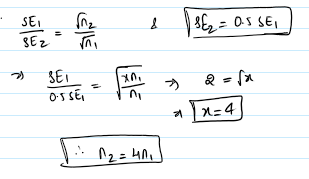 SE₁/SE₂ = √n₂/√n₁ & SE₂ = 0.5 SE₁
⇒ SE₁/0.5 SE₁ = √(xn₁/n₁) ⇒ 2 = √x
⇒ x = 4
∴ n₂ = 4n₁